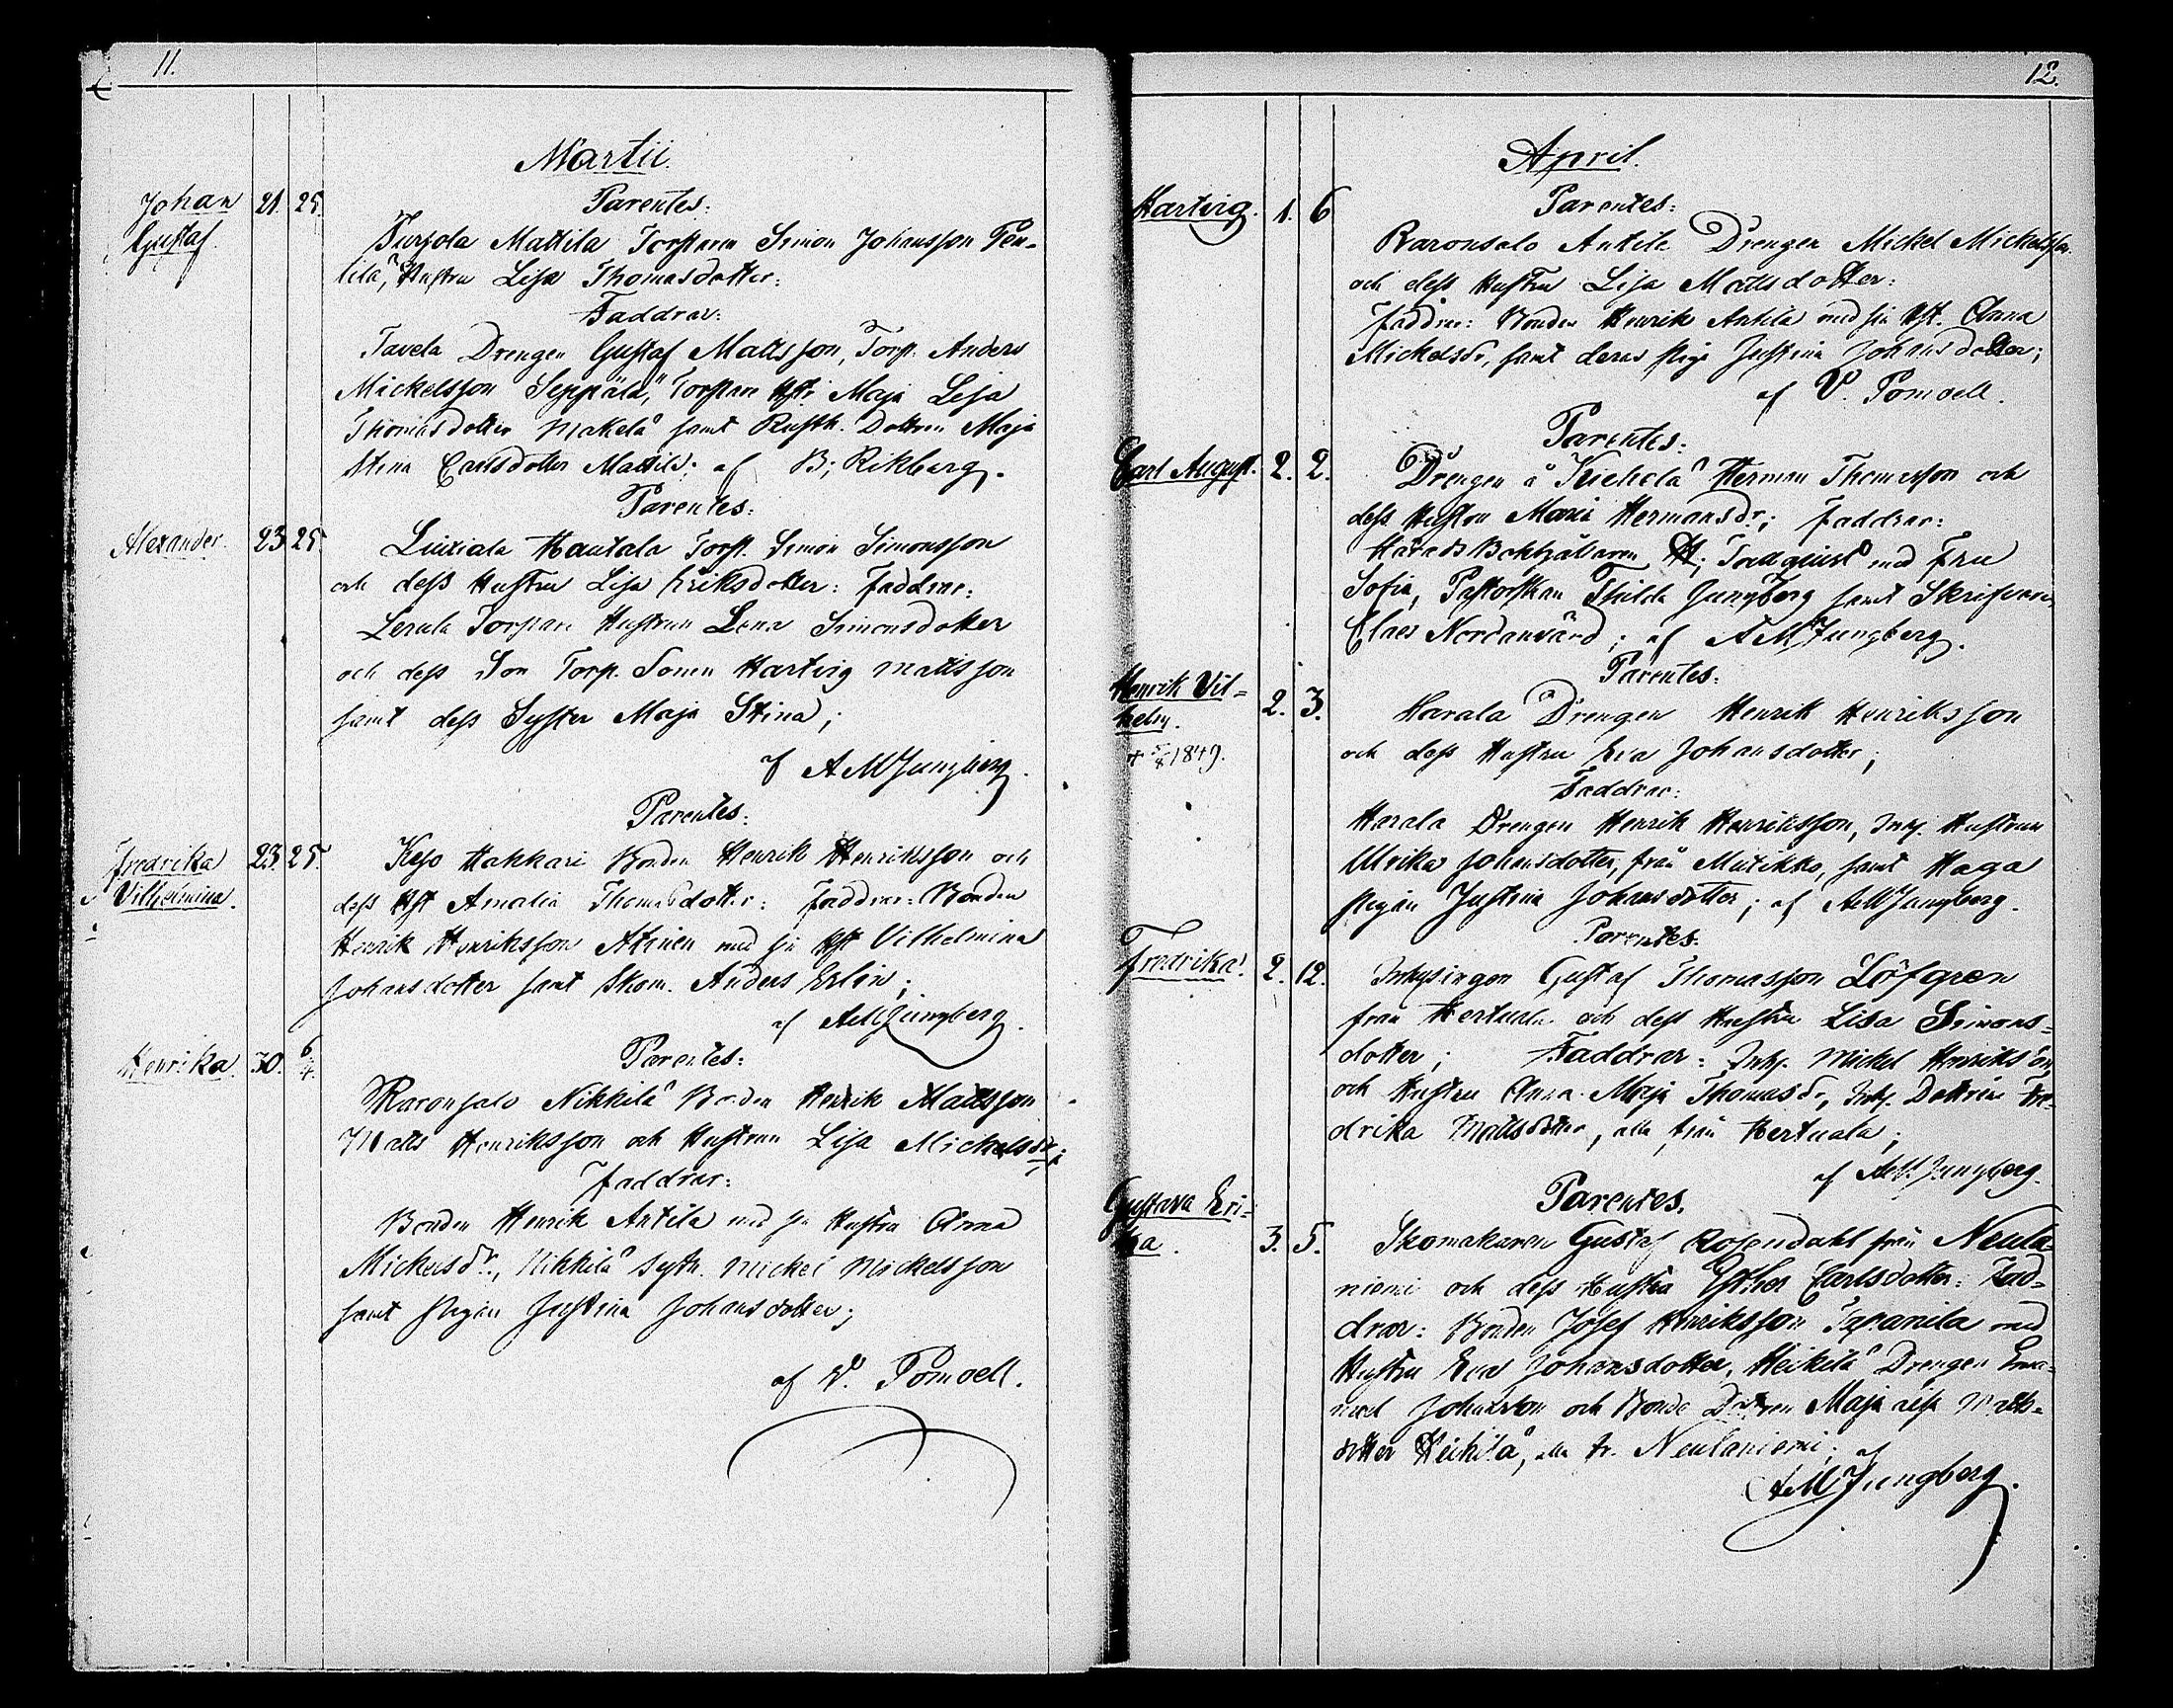 11.
Martii.
Johan Gustaf. 21. 25.
Parentes:
Turjola Mattila Torparen Simon Johansson Pen-
tilä, Hustru Lisa Thomasdotter:
Faddrar:
Tavela Drengen Gustaf Mattsson, Torp. Anders
Mickelsson Seppälä, Torpare Hst. Maja Lisa
Thomasdotter Mäkelä samt Rusth. Dottren Maja
Stina Carlsdotter Mattila; af B; Rikberg.
Alexander. 23 25.
Parentes:
Hautala Torp. Simon Simonsson
och dess Hustru Lisa Eriksdotter: Faddrar:
Lerula Torpare Hustrun Lena Simonsdotter
och dess Son Torp. Sonen Hartvig Mattsson
samt dess Syster Maja Stina;
af AMJungberg.
Fredrika Vilhelmina. 23. 25.
Parentes:
Keso Hakkari Bonden Henrik Henriksson och
dess Hst Amalia Thomasdotter: Faddrar: Bonden
Henrik Henriksson Ahinen med sin Hst Vilhelmina
Johansdotter samt Skom. Anders Erlin;
af AMJungberg.
Henrika. 30. 6/4.
Parentes:
Raronsalo Nikkilä Bonden Henrik Mattsson
Matts Henriksson och Hustrun Lisa Mickelsdr;
Faddrar:
Bonden Henrik Antila med sin Hustru Anna
Mickelsdr., Nikkilä Sytn. Mickel Mickelsson
samt pigan Justina Johansdotter;
af V. Pomoell.
12.
April.
Hartvig. 1. 6
Parentes:
Raronsalo Antila Drengen Mickel Mickelsson
och dess Hustru Lisa Mattsdotter:
Faddrar: Bonden Henrik Antila med sin Hst. Anna
Mickelsdr, samt deras piga Justina Johansdotter;
af V. Pomoell.
Carl August. 2. 2.
Parentes:
Drengen å Kuchola Herman Thomasson och
dess Hustru Maria Hermansdr; Faddrar:
Härads Bokhållaren H; Tordquist med Fru
Sofia, Pastorskan Thilda Jungberg samt Skrifvaren
Claes Nordanvänd; af AMJungberg.
Henrik Vil-
helm. 2. 3.
+ 5/8 1849.
Parentes:
Harala Drengen Henrik Henriksson
och dess Hustru Eva Johansdotter;
Faddrar:
Harala Drengen Henrik Henriksson, Inh. Hustrun
Ulrika Johansdotter, från Mutikko, samt Haga
pigan Justina Johansdotter; af AMJungberg.
Fredrika. 2. 12.
Parentes.
Inhysingen Gustaf Thomasson Löfgren
från Kertuala och dess Hustru Lisa Simons-
dotter; Faddrar: Inh. Mickel Henriksson
och Hustru Anna Maja Thomasdr, Inh. Dottren Fre-
drika Mattsdotter, alla från Kertuala;
af AMJungberg.
Gustava Eri-
ka. 3. 5.
Parentes.
Skomakaren Gustaf Rosendahl från Neula-
niemi och dess Hustru Esther Carlsdotter: Fad-
drar: Bonden Josef Henriksson Tapanila med
Hustru Eva Johansdotter, Heikilä Drengen Ema-
nuel Johansson och Bonde Dottren Maja Lisa Matts-
dotter Heikilä, alla fr. Neulaniemi; af
AMJungberg.